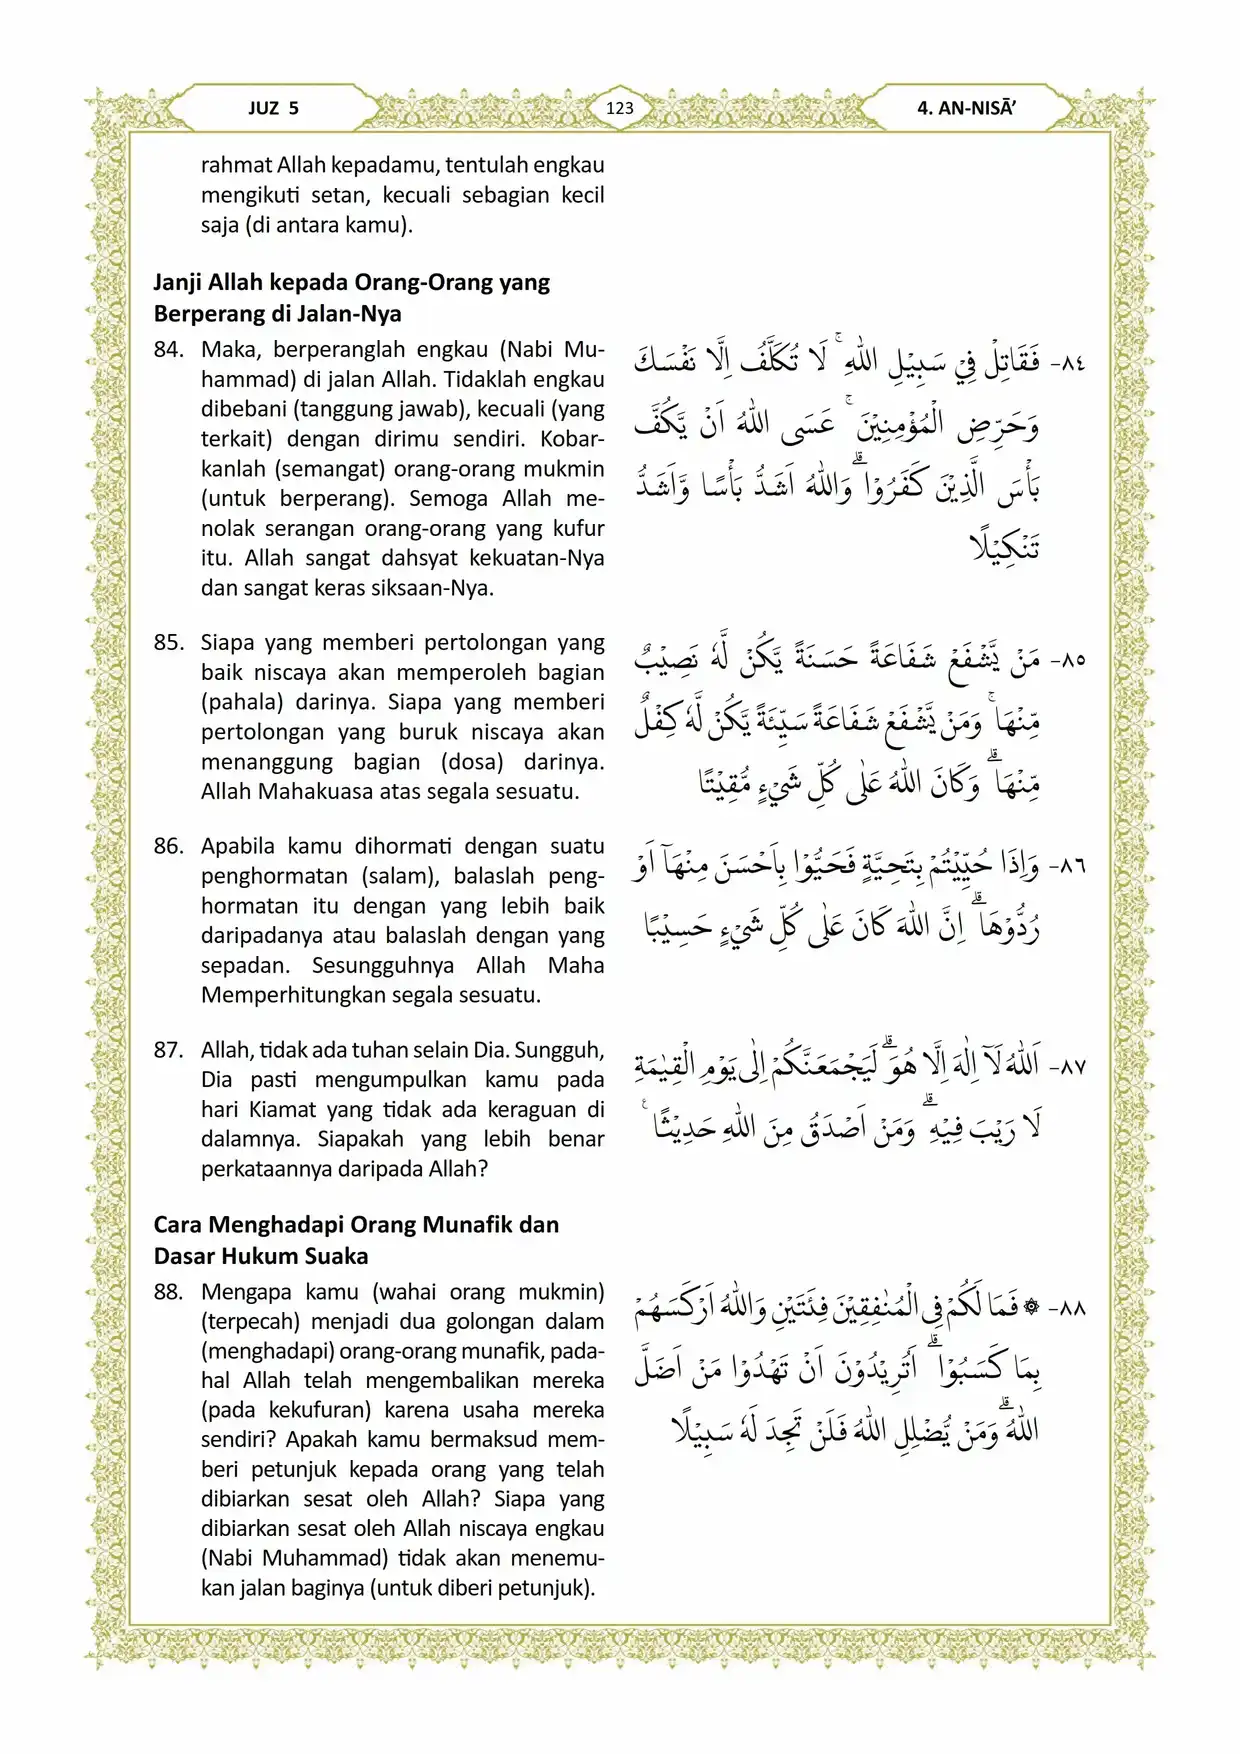 JUZ 5
123
4. AN-NISĀ’
rahmat Allah kepadamu, tentulah engkau
mengikuti setan, kecuali sebagian kecil
saja (di antara kamu).
Janji Allah kepada Orang-Orang yang
Berperang di Jalan-Nya
84. Maka, berperanglah engkau (Nabi Mu-
hammad) di jalan Allah. Tidaklah engkau
dibebani (tanggung jawab), kecuali (yang
terkait) dengan dirimu sendiri. Kobar-
kanlah (semangat) orang-orang mukmin
(untuk berperang). Semoga Allah me-
nolak serangan orang-orang yang kufur
itu. Allah sangat dahsyat kekuatan-Nya
dan sangat keras siksaan-Nya.
٨٤- فَقَاتِلْ فِيْ سَبِيْلِ اللّٰهِ ۚ لَا تُكَلَّفُ اِلَّا نَفْسَكَ
وَحَرِّضِ الْمُؤْمِنِيْنَ ۚ عَسَى اللّٰهُ اَنْ يَّكُفَّ
بَأْسَ الَّذِيْنَ كَفَرُوْا ۗوَاللّٰهُ اَشَدُّ بَأْسًا وَّاَشَدُّ
تَنْكِيْلًا
85. Siapa yang memberi pertolongan yang
baik niscaya akan memperoleh bagian
(pahala) darinya. Siapa yang memberi
pertolongan yang buruk niscaya akan
menanggung bagian (dosa) darinya.
Allah Mahakuasa atas segala sesuatu.
٨٥- مَنْ يَّشْفَعْ شَفَاعَةً حَسَنَةً يَّكُنْ لَّهٗ نَصِيْبٌ
مِّنْهَا ۚ وَمَنْ يَّشْفَعْ شَفَاعَةً سَيِّئَةً يَّكُنْ لَّهٗ كِفْلٌ
مِّنْهَا ۗ وَكَانَ اللّٰهُ عَلٰى كُلِّ شَيْءٍ مُّقِيْتًا
86. Apabila kamu dihormati dengan suatu
penghormatan (salam), balaslah peng-
hormatan itu dengan yang lebih baik
daripadanya atau balaslah dengan yang
sepadan. Sesungguhnya Allah Maha
Memperhitungkan segala sesuatu.
٨٦- وَاِذَا حُيِّيْتُمْ بِتَحِيَّةٍ فَحَيُّوْا بِاَحْسَنَ مِنْهَآ اَوْ
رُدُّوْهَا ۗ اِنَّ اللّٰهَ كَانَ عَلٰى كُلِّ شَيْءٍ حَسِيْبًا
87. Allah, tidak ada tuhan selain Dia. Sungguh,
Dia pasti mengumpulkan kamu pada
hari Kiamat yang tidak ada keraguan di
dalamnya. Siapakah yang lebih benar
perkataannya daripada Allah?
٨٧- اَللّٰهُ لَآ اِلٰهَ اِلَّا هُوَۗ لَيَجْمَعَنَّكُمْ اِلٰى يَوْمِ الْقِيٰمَةِ
لَا رَيْبَ فِيْهِ ۗ وَمَنْ اَصْدَقُ مِنَ اللّٰهِ حَدِيْثًا ࣖ
Cara Menghadapi Orang Munafik dan
Dasar Hukum Suaka
88. Mengapa kamu (wahai orang mukmin)
(terpecah) menjadi dua golongan dalam
(menghadapi) orang-orang munafik, pada-
hal Allah telah mengembalikan mereka
(pada kekufuran) karena usaha mereka
sendiri? Apakah kamu bermaksud mem-
beri petunjuk kepada orang yang telah
dibiarkan sesat oleh Allah? Siapa yang
dibiarkan sesat oleh Allah niscaya engkau
(Nabi Muhammad) tidak akan menemu-
kan jalan baginya (untuk diberi petunjuk).
٨٨- ۞ فَمَا لَكُمْ فِى الْمُنٰفِقِيْنَ فِئَتَيْنِ وَاللّٰهُ اَرْكَسَهُمْ
بِمَا كَسَبُوْا ۗ اَتُرِيْدُوْنَ اَنْ تَهْدُوْا مَنْ اَضَلَّ
اللّٰهُ ۗوَمَنْ يُّضْلِلِ اللّٰهُ فَلَنْ تَجِدَ لَهٗ سَبِيْلًا